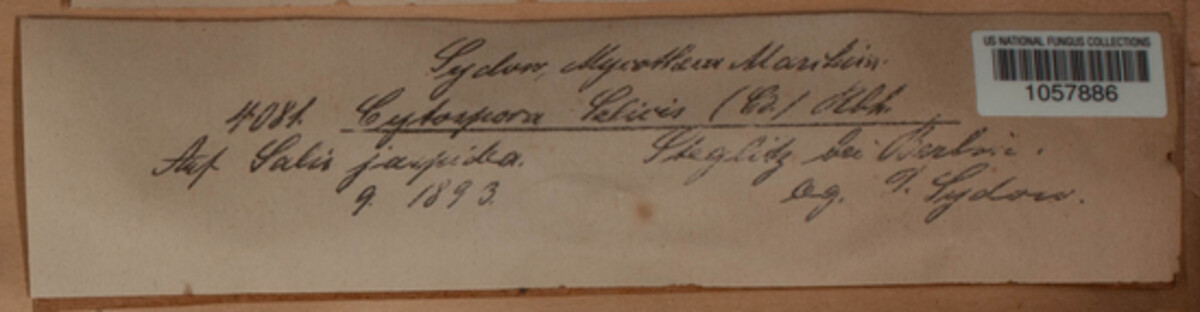 Sydow, Mycotheca Marchica.
US NATIONAL FUNGUS COLLECTIONS
1057886
4081. Cytospora Salicis (Cd.) Rbh.
Auf Salix jaspidea. Steglitz bei Berlin.
9. 1893. leg. P. Sydow.